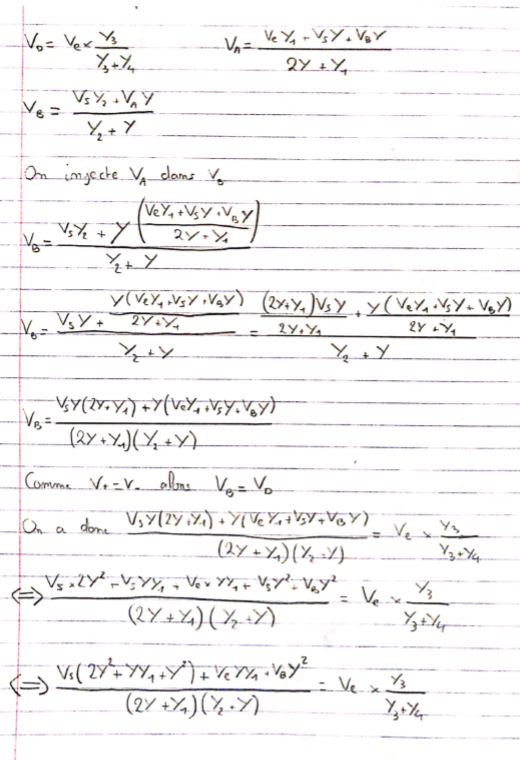 V_D = Ve × Y3/(Y3+Y4)    V_A = (Ve Y1 + Vs Y + V_B Y)/(2Y + Y1)
V_B = (Vs Y2 + V_A Y)/(Y2 + Y)
On injecte V_A dans V_B
V_B = (Vs Y2 + Y((Ve Y1 + Vs Y + V_B Y)/(2Y + Y1)))/(Y2 + Y)
V_B = (Vs Y + Y(Ve Y1 + Vs Y + V_B Y)/(2Y + Y1))/(Y2 + Y) = ((2Y+Y1)Vs Y/(2Y+Y1) + Y(Ve Y1 + Vs Y + V_B Y)/(2Y + Y1))/(Y2 + Y)
V_B = (Vs Y(2Y + Y1) + Y(Ve Y1 + Vs Y + V_B Y))/((2Y + Y1)(Y2 + Y))
Comme V+ = V- alors V_B = V_D
On a donc (Vs Y(2Y + Y1) + Y(Ve Y1 + Vs Y + V_B Y))/((2Y + Y1)(Y2 + Y)) = Ve × Y3/(Y3+Y4)
⟺ (Vs × 2Y² + Vs Y Y1 + Ve × Y Y1 + Vs Y² + V_B Y²)/((2Y + Y1)(Y2 + Y)) = Ve × Y3/(Y3+Y4)
⟺ (Vs(2Y² + Y Y1 + Y²) + Ve Y Y1 + V_B Y²)/((2Y + Y1)(Y2 + Y)) = Ve × Y3/(Y3+Y4)